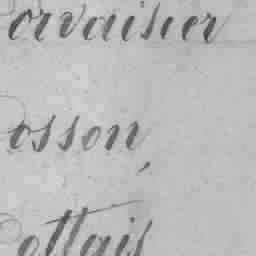 orvaisier
osson,
ottais